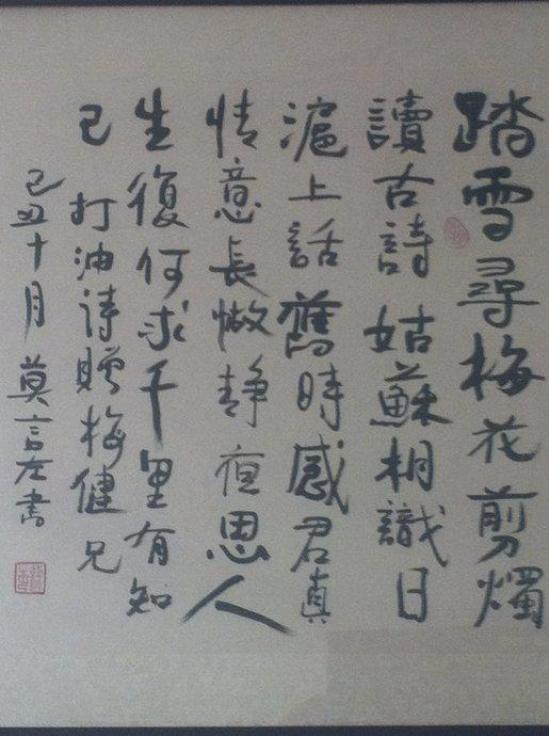 踏雪尋梅花剪燭
讀古詩姑蘇相識日
滬上話舊時感君真
情意長靜夜思人
生復何求千里有知
己打油诗贈梅健兄
己丑十月莫言左書